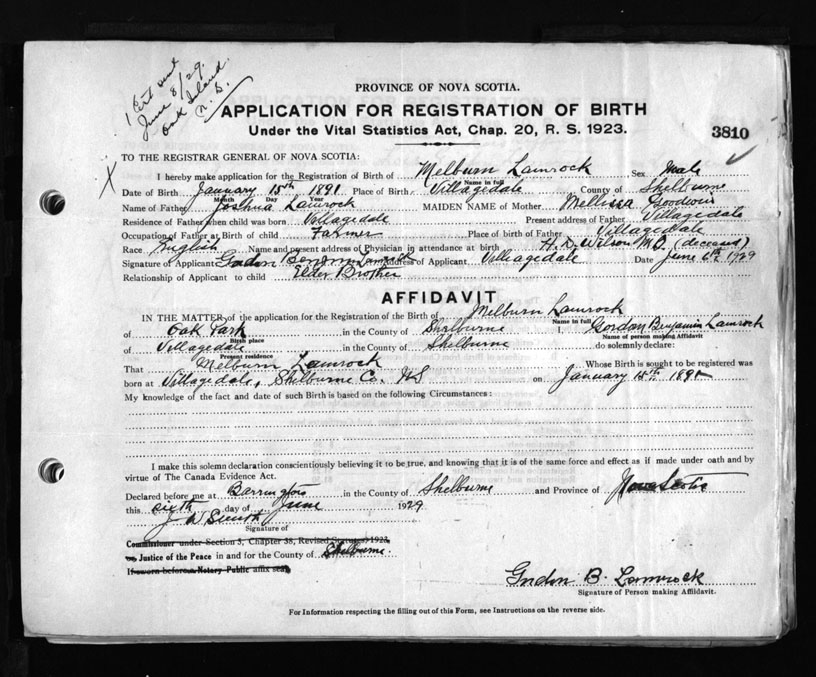 1 Cert sent
June 8/29.
Oak Island.
N. S.
PROVINCE OF NOVA SCOTIA.
APPLICATION FOR REGISTRATION OF BIRTH
Under the Vital Statistics Act, Chap. 20, R. S. 1923.
3810
TO THE REGISTRAR GENERAL OF NOVA SCOTIA:
I hereby make application for the Registration of Birth of Melburn Lamrock Sex Male
Name in full
Date of Birth January 15th 1891 Place of Birth Villagedale County of Shelburne
Month Day Year
Name of Father Joshua Lamrock MAIDEN NAME of Mother Mellissa Goodwin
Residence of Father when child was born Villagedale Present address of Father Villagedale
Occupation of Father at Birth of child Farmer Place of birth of Father Villagedale
Race English Name and present address of Physician in attendance at birth H. D. Wilson M.D. (deceased)
Signature of Applicant Gordon Benjamin Lamrock Address of Applicant Villagedale Date June 6th 1929
Relationship of Applicant to child Elder Brother
AFFIDAVIT
IN THE MATTER of the application for the Registration of the Birth of Melburn Lamrock
Name in full
of Oak Park in the County of Shelburne I, Gordon Benjamin Lamrock
Birth place Name of person making Affidavit
of Villagedale in the County of Shelburne do solemnly declare:
Present residence
That Melburn Lamrock Whose Birth is sought to be registered was
born at Villagedale, Shelburne Co. NS on January 15th 1891
My knowledge of the fact and date of such Birth is based on the following Circumstances:
I make this solemn declaration conscientiously believing it to be true, and knowing that it is of the same force and effect as if made under oath and by
virtue of The Canada Evidence Act.
Declared before me at Barrington in the County of Shelburne and Province of Nova Scotia
this sixth day of June 1929
J W Smith
Signature of
Commissioner under Section 3, Chapter 38, Revised Statutes 1923,
or Justice of the Peace in and for the County of Shelburne.
If sworn before a Notary Public affix seal
Gordon B. Lamrock
Signature of Person making Affidavit.
For Information respecting the filling out of this Form, see Instructions on the reverse side.